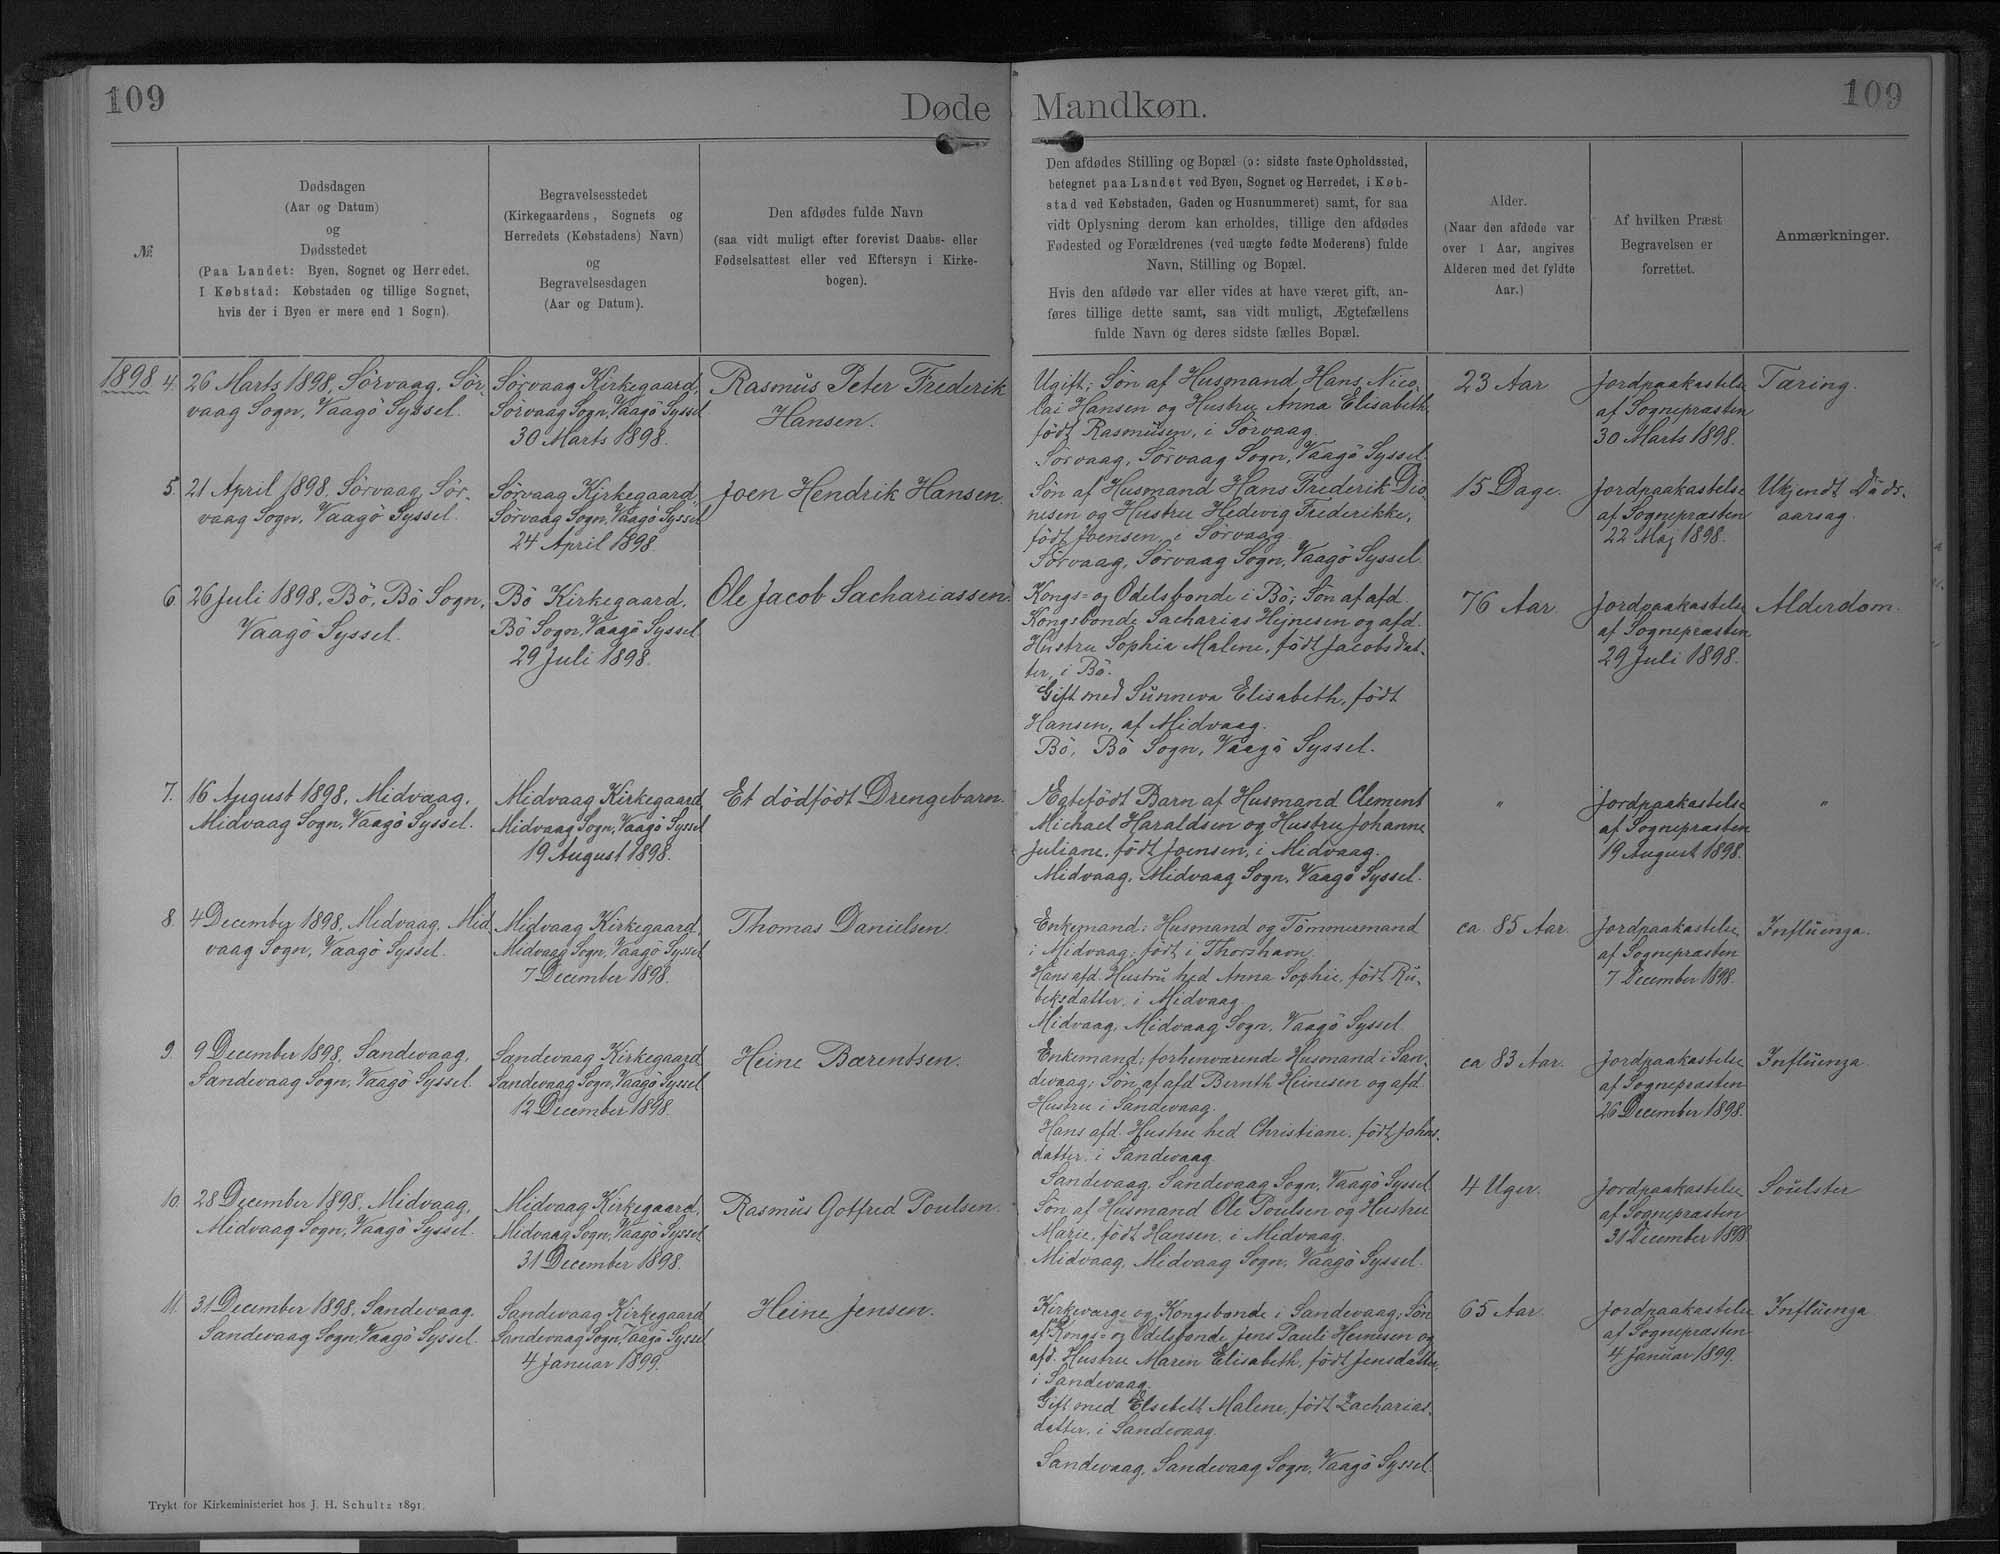 109
Døde
Mandkøn.
109
№
Dødsdagen
(Aar og Datum)
og
Dødsstedet
(Paa Landet: Byen, Sognet og Herredet.
I Købstad: Købstaden og tillige Sognet,
hvis der i Byen er mere end 1 Sogn).
Begravelsesstedet
(Kirkegaardens, Sognets og
Herredets (Købstadens) Navn)
og
Begravelsesdagen
(Aar og Datum).
Den afdødes fulde Navn
(saa vidt muligt efter forevist Daabs- eller
Fødselsattest eller ved Eftersyn i Kirke-
bogen).
Den afdødes Stilling og Bopæl (ɔ: sidste faste Opholdssted,
betegnet paa Landet ved Byen, Sognet og Herredet, i Køb-
stad ved Købstaden, Gaden og Husnummeret) samt, for saa
vidt Oplysning derom kan erholdes, tillige den afdødes
Fødested og Forældrenes (ved uægte fødte Moderens) fulde
Navn, Stilling og Bopæl.
Hvis den afdøde var eller vides at have været gift, an-
føres tillige dette samt, saa vidt muligt, Ægtefællens
fulde Navn og deres sidste fælles Bopæl.
Alder.
(Naar den afdøde var
over 1 Aar, angives
Alderen med det fyldte
Aar.)
Af hvilken Præst
Begravelsen er
forrettet.
Anmærkninger.
1898
4.
26 Marts 1898, Sörvaag, Sör-
vaag Sogn, Vaagö Syssel.
Sörvaag Kirkegaard,
Sörvaag Sogn, Vaagö Syssel
30 Marts 1898.
Rasmus Peter Frederik
Hansen.
Ugift; Sön af Husmand Hans Nico-
lai Hansen og Hustru Anna Elisabeth,
födt Rasmusen, i Sörvaag.
Sörvaag, Sörvaag Sogn, Vaagö Syssel.
23 Aar
Jordpaakastelse
af Sognepræsten
30 Marts 1898.
Tæring.
5.
21 April 1898, Sörvaag, Sör-
vaag Sogn, Vaagö Syssel.
Sörvaag Kirkegaard,
Sörvaag Sogn, Vaagö Syssel
24 April 1898.
Joen Hendrik Hansen.
Sön af Husmand Hans Frederik Dio-
nesen og Hustru Hedevig Frederikke,
födt Joensen, i Sörvaag.
Sörvaag, Sörvaag Sogn, Vaagö Syssel.
15 Dage.
Jordpaakastelse
af Sognepræsten
22 Maj 1898.
Ukjendt Döds-
aarsag.
6
26 Juli 1898, Bö, Bö Sogn,
Vaagö Syssel.
Bö Kirkegaard,
Bö Sogn, Vaagö Syssel
29 Juli 1898.
Ole Jacob Sachariassen.
Kongs- og Odelsbonde i Bö; Sön af afd.
Kongsbonde Sacharias Hejnesen og afd.
Hustru Sophia Malene, födt Jacobsdat-
ter, i Bö.
Gift med Sunneva Elisabeth, födt
Hansen, af Midvaag.
Bö, Bö Sogn, Vaagö Syssel.
76 Aar.
Jordpaakastelse
af Sognepræsten
29 Juli 1898.
Alderdom.
7.
16 August 1898, Midvaag,
Midvaag Sogn, Vaagö Syssel.
Midvaag Kirkegaard
Midvaag Sogn, Vaagö Syssel
19 August 1898.
Et dödfödt Drengebarn.
Ægtefödt Barn af Husmand Clement
Michael Haraldsen og Hustru Johanne
Juliane, födt Joensen, i Midvaag.
Midvaag, Midvaag Sogn, Vaagö Syssel.
"
Jordpaakastelse
af Sognepræsten
19 August 1898.
"
8.
4 December 1898, Midvaag, Mid
vaag Sogn, Vaagö Syssel.
Midvaag Kirkegaard,
Midvaag Sogn, Vaagö Syssel
7 December 1898.
Thomas Danielsen.
Enkemand; Husmand og Tömmermand
i Midvaag; födt i Thorshavn.
Hans afd. Hustru hed Anna Sophie, födt Ru-
beksdatter, i Midvaag.
Midvaag, Midvaag Sogn, Vaagö Syssel.
ca. 85 Aar.
Jordpaakastelse
af Sognepræsten
7 December 1898.
Influenza.
9.
9 December 1898, Sandevaag,
Sandevaag Sogn, Vaagö Syssel.
Sandevaag Kirkegaard
Sandevaag Sogn, Vaagö Syssel
12 December 1898.
Heine Bærentsen.
Enkemand; forhenværende Husmand i San-
devaag; Sön af afd. Bernth Heinesen og afd.
Hustru i Sandevaag.
Hans afd. Hustru hed Christiane, födt Johns-
datter, i Sandevaag.
Sandevaag, Sandevaag Sogn, Vaagö Syssel
ca 83 Aar.
Jordpaakastelse
af Sognepræsten
26 December 1898.
Influenza.
10.
28 December 1898, Midvaag,
Midvaag Sogn, Vaagö Syssel.
Midvaag Kirkegaard,
Midvaag Sogn, Vaagö Syssel
31 December 1898.
Rasmus Gotfred Poulsen.
Sön af Husmand Ole Poulsen og Hustru
Marie, födt Hansen, i Midvaag.
Midvaag, Midvaag Sogn, Vaagö Syssel.
4 Uger.
Jordpaakastelse
af Sognepræsten
31 December 1898
11.
31 December 1898, Sandevaag,
Sandevaag Sogn, Vaagö Syssel.
Sandevaag Kirkegaard
Sandevaag Sogn, Vaagö Syssel
4 Januar 1899.
Heine Jensen.
Kirkeværge og Kongsbonde i Sandevaag; Sön
af Kongs- og Odelsbonde Jens Pauli Heinesen og
afd. Hustru Maren Elisabeth, födt Jensdatter,
i Sandevaag.
Gift med Elsebeth Malene, födt Zacharias-
datter, i Sandevaag.
Sandevaag, Sandevaag Sogn, Vaagö Syssel.
65 Aar.
Jordpaakastelse
af Sognepræsten
4 Januar 1899.
Influenza
Trykt for Kirkeministeriet hos J. H. Schultz 1891.